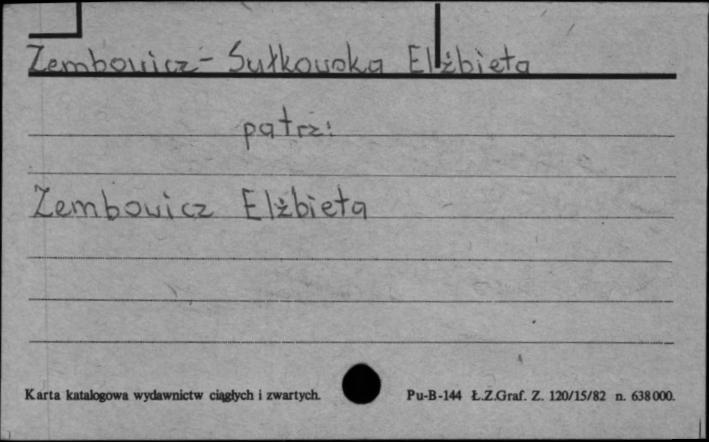 Zembowicz-Sułkowska Elżbieta
patrz:
Zembowicz Elżbieta
Karta katalogowa wydawnictw ciągłych i zwartych. Pu-B-144 Ł.Z.Graf. Z. 120/15/82 n. 638000.